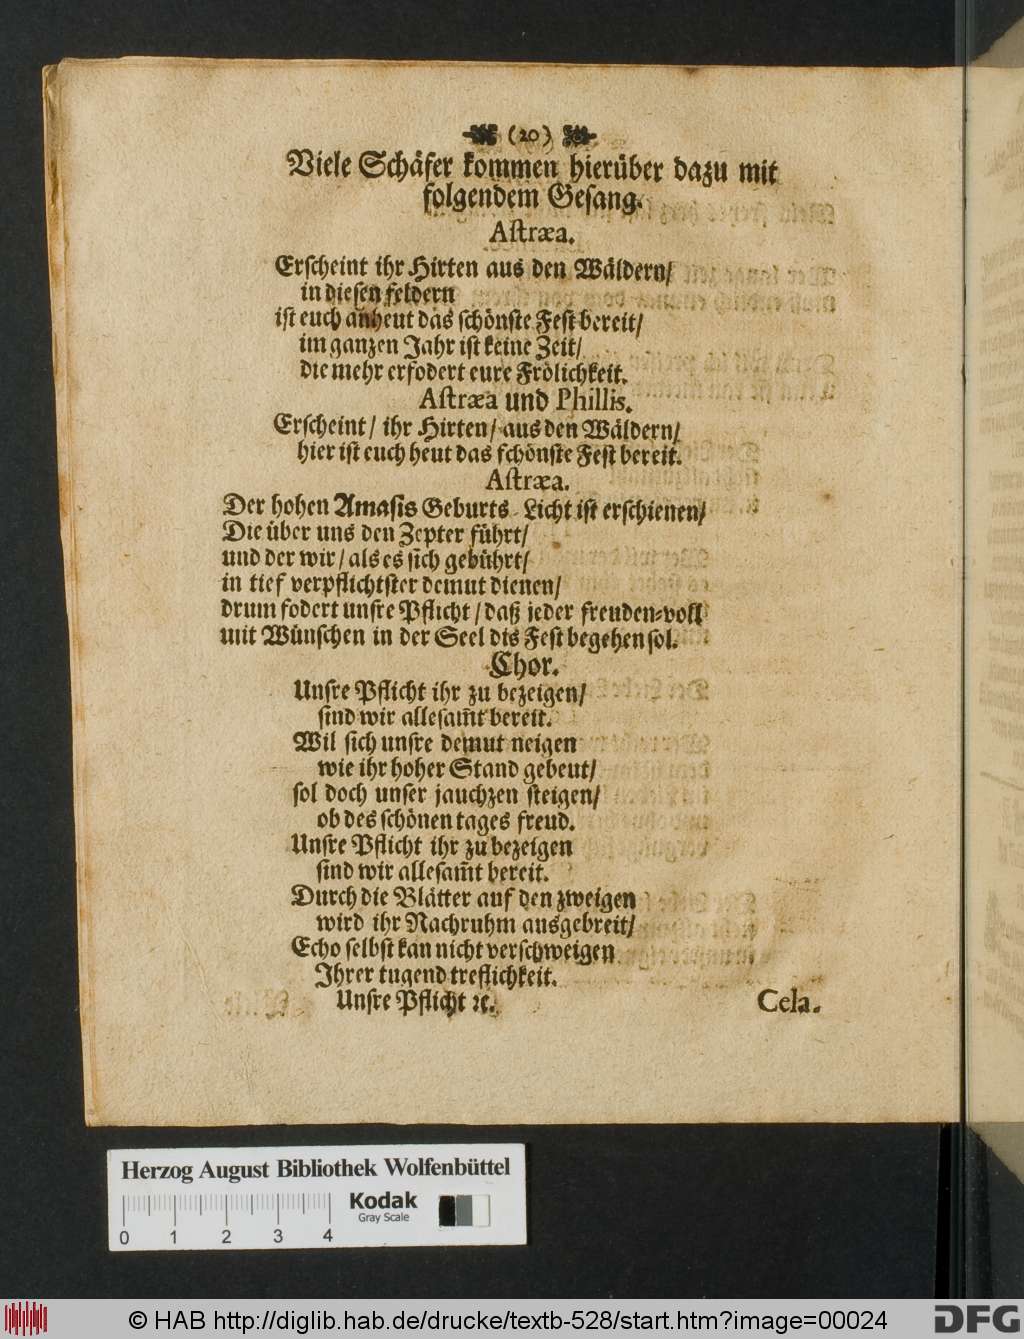 (20)
Viele Schäfer kommen hierüber dazu mit
folgendem Gesang.
Astræa.
Erscheint ihr Hirten aus den Wäldern/
in diesen feldern
ist euch anheut das schönste Fest bereit/
im ganzen Jahr ist keine Zeit/
die mehr erfodert eure Frölichkeit.
Astræa und Phillis.
Erscheint/ ihr Hirten/ aus den Wäldern/
hier ist euch heut das schönste Fest bereit.
Astræa.
Der hohen Amasis Geburts-Licht ist erschienen/
Die über uns den Zepter führt/
und der wir/ als es sich gebührt/
in tief verpflichtster demut dienen/
drum fodert unsre Pflicht/ daß jeder freuden-voll
mit Wünschen in der Seel dis Fest begehen sol.
Chor.
Unsre Pflicht ihr zu bezeigen/
sind wir allesam̃t bereit.
Wil sich unsre demut neigen
wie ihr hoher Stand gebeut/
sol doch unser jauchzen steigen/
ob des schönen tages freud.
Unsre Pflicht ihr zu bezeigen
sind wir allesam̃t bereit.
Durch die Blätter auf den zweigen
wird ihr Nachruhm ausgebreit/
Echo selbst kan nicht verschweigen
Ihrer tugend treflichkeit.
Unsre Pflicht ꝛc.
Cela.
Herzog August Bibliothek Wolfenbüttel
Kodak
Gray Scale
0 1 2 3 4
© HAB http://diglib.hab.de/drucke/textb-528/start.htm?image=00024
DFG